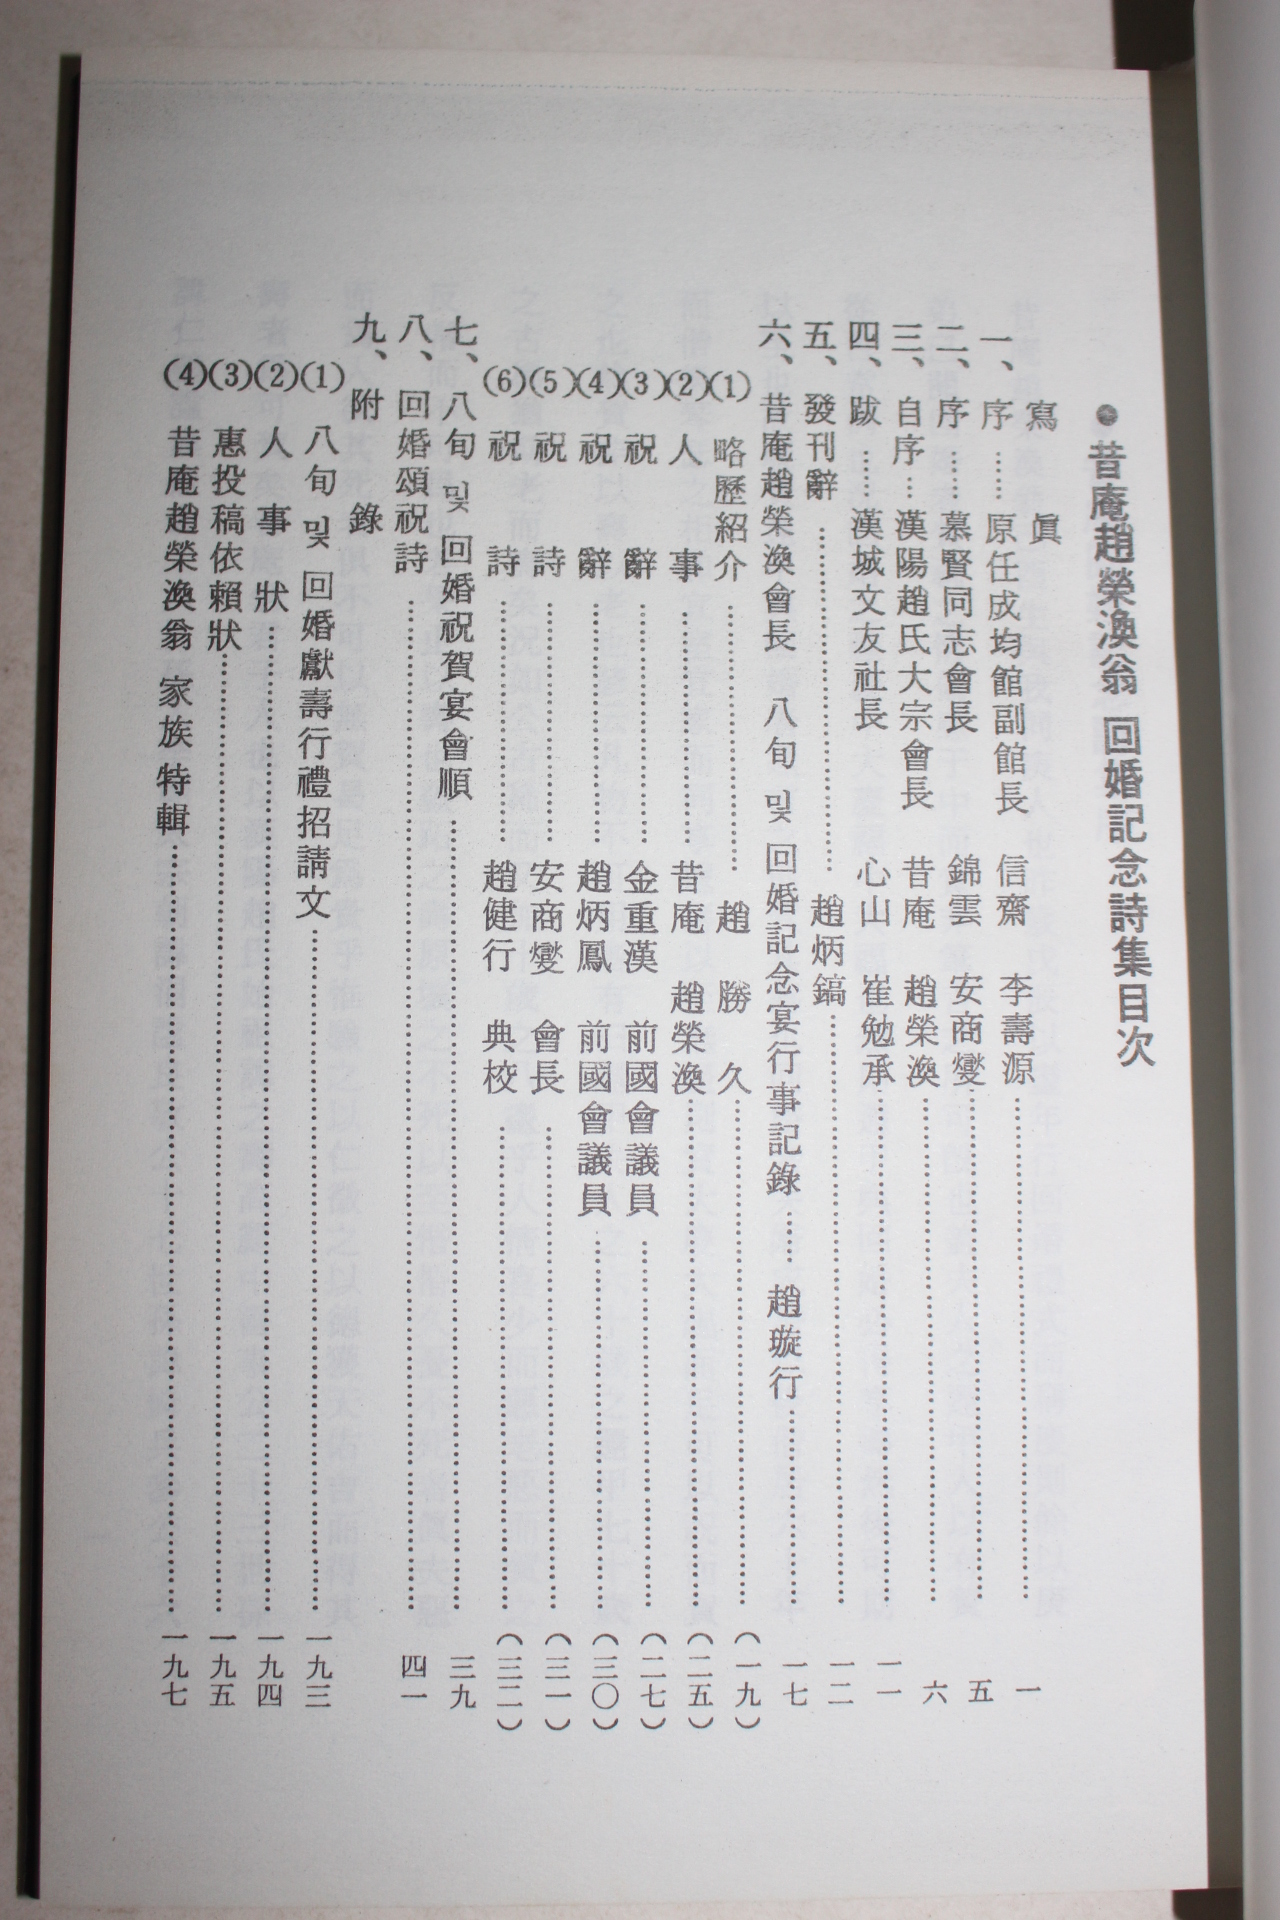 ●昔庵趙榮渙翁 回婚記念詩集目次
寫眞
一、序……原任成均館副館長 信齋 李壽源……一
二、序……慕賢同志會長 錦雲 安商燮……五
三、自序…漢陽趙氏大宗會長 昔庵 趙榮渙……六
四、跋……漢城文友社長 心山 崔勉承……一一
五、發刊辭……趙炳鎬……一二
六、昔庵趙榮渙會長 八旬 및 回婚記念宴行事記錄……趙璇行……一七
(1) 略歷紹介……趙勝久……(一九)
(2) 人事……昔庵 趙榮渙……(二五)
(3) 祝辭……金重漢 前國會議員……(二七)
(4) 祝辭……趙炳鳳 前國會議員……(三〇)
(5) 祝詩……安商燮 會長……(三一)
(6) 祝詩……趙健行 典校……(三二)
七、八旬 및 回婚祝賀宴會順……三九
八、回婚頌祝詩……四一
九、附錄
(1) 八旬 및 回婚獻壽行禮招請文……一九三
(2) 人事狀……一九四
(3) 惠投稿依賴狀……一九五
(4) 昔庵趙榮渙翁 家族特輯……一九七